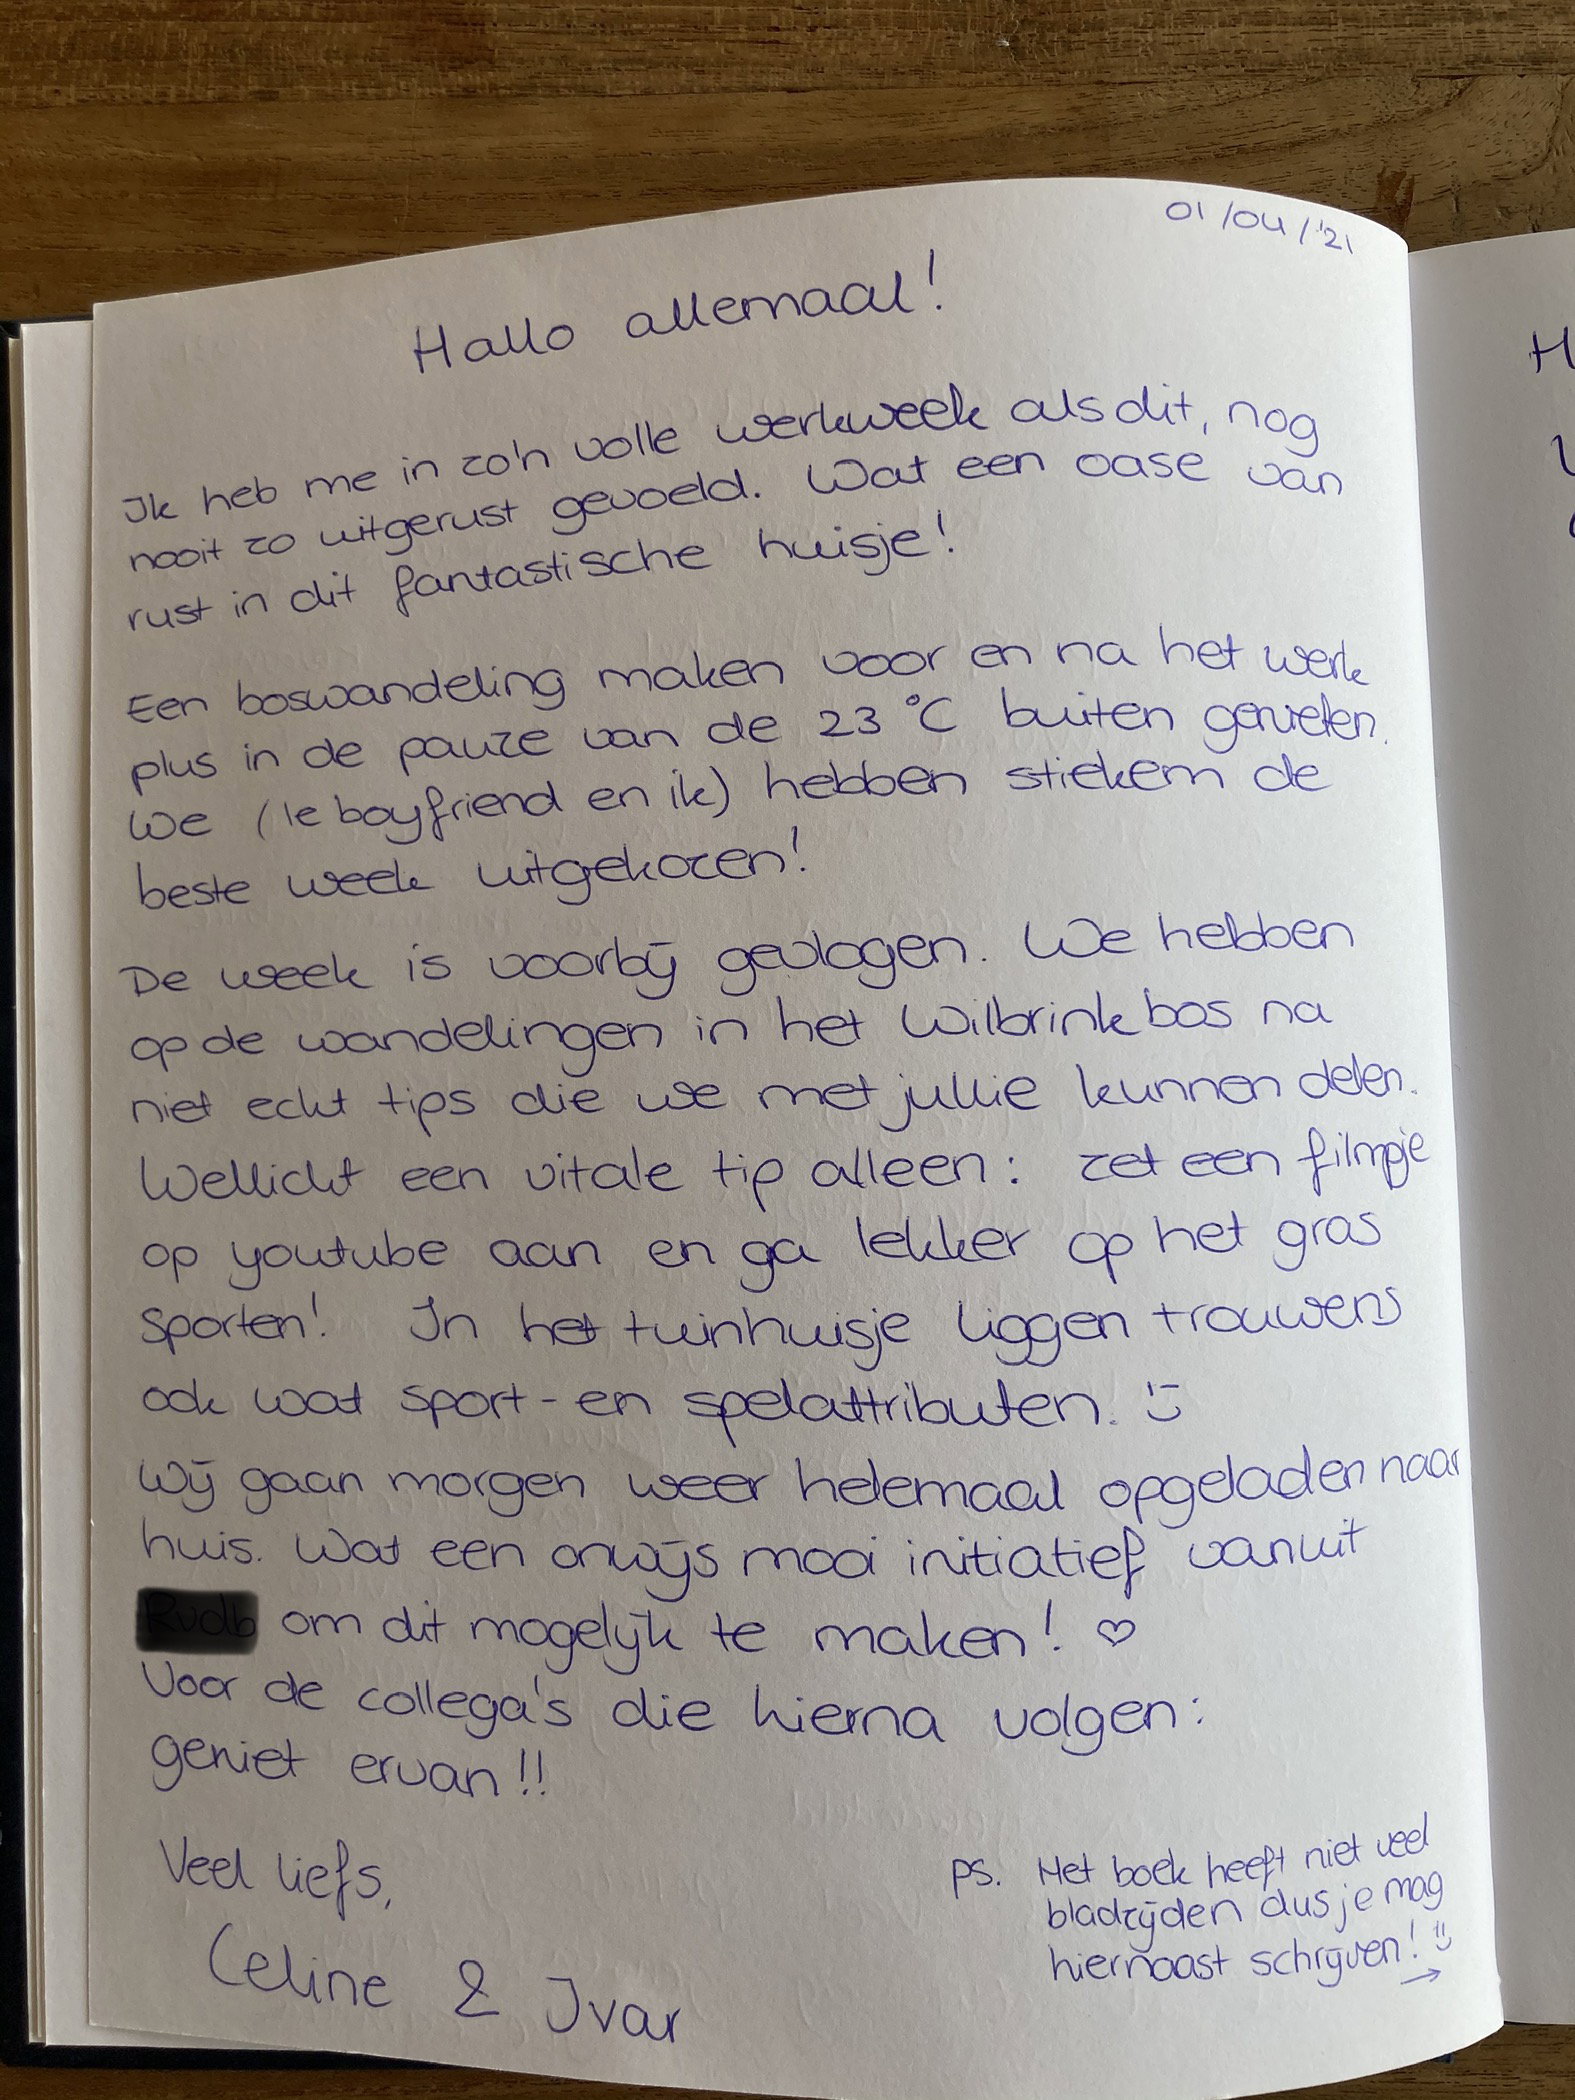 01/04/'21
Hallo allemaal!
Ik heb me in zo'n volle werkweek als dit, nog
nooit zo uitgerust gevoeld. Wat een oase van
rust in dit fantastische huisje!
Een boswandeling maken voor en na het werk
plus in de pauze van de 23 °C buiten genieten.
We (le boyfriend en ik) hebben stiekem de
beste week uitgekozen!
De week is voorbij gevlogen. We hebben
op de wandelingen in het Wilbrinkbos na
niet echt tips die we met jullie kunnen delen.
Wellicht een vitale tip alleen: zet een filmpje
op youtube aan en ga lekker op het gras
sporten! In het tuinhuisje liggen trouwens
ook wat sport- en spelattributen. :)
Wij gaan morgen weer helemaal opgeladen naar
huis. Wat een onwijs mooi initiatief vanuit
om dit mogelijk te maken! ♡
Voor de collega's die hierna volgen:
geniet ervan!!
Veel liefs,
Celine & Ivar
PS. Het boek heeft niet veel
bladzijden dus je mag
hiernaast schrijven! :)
→